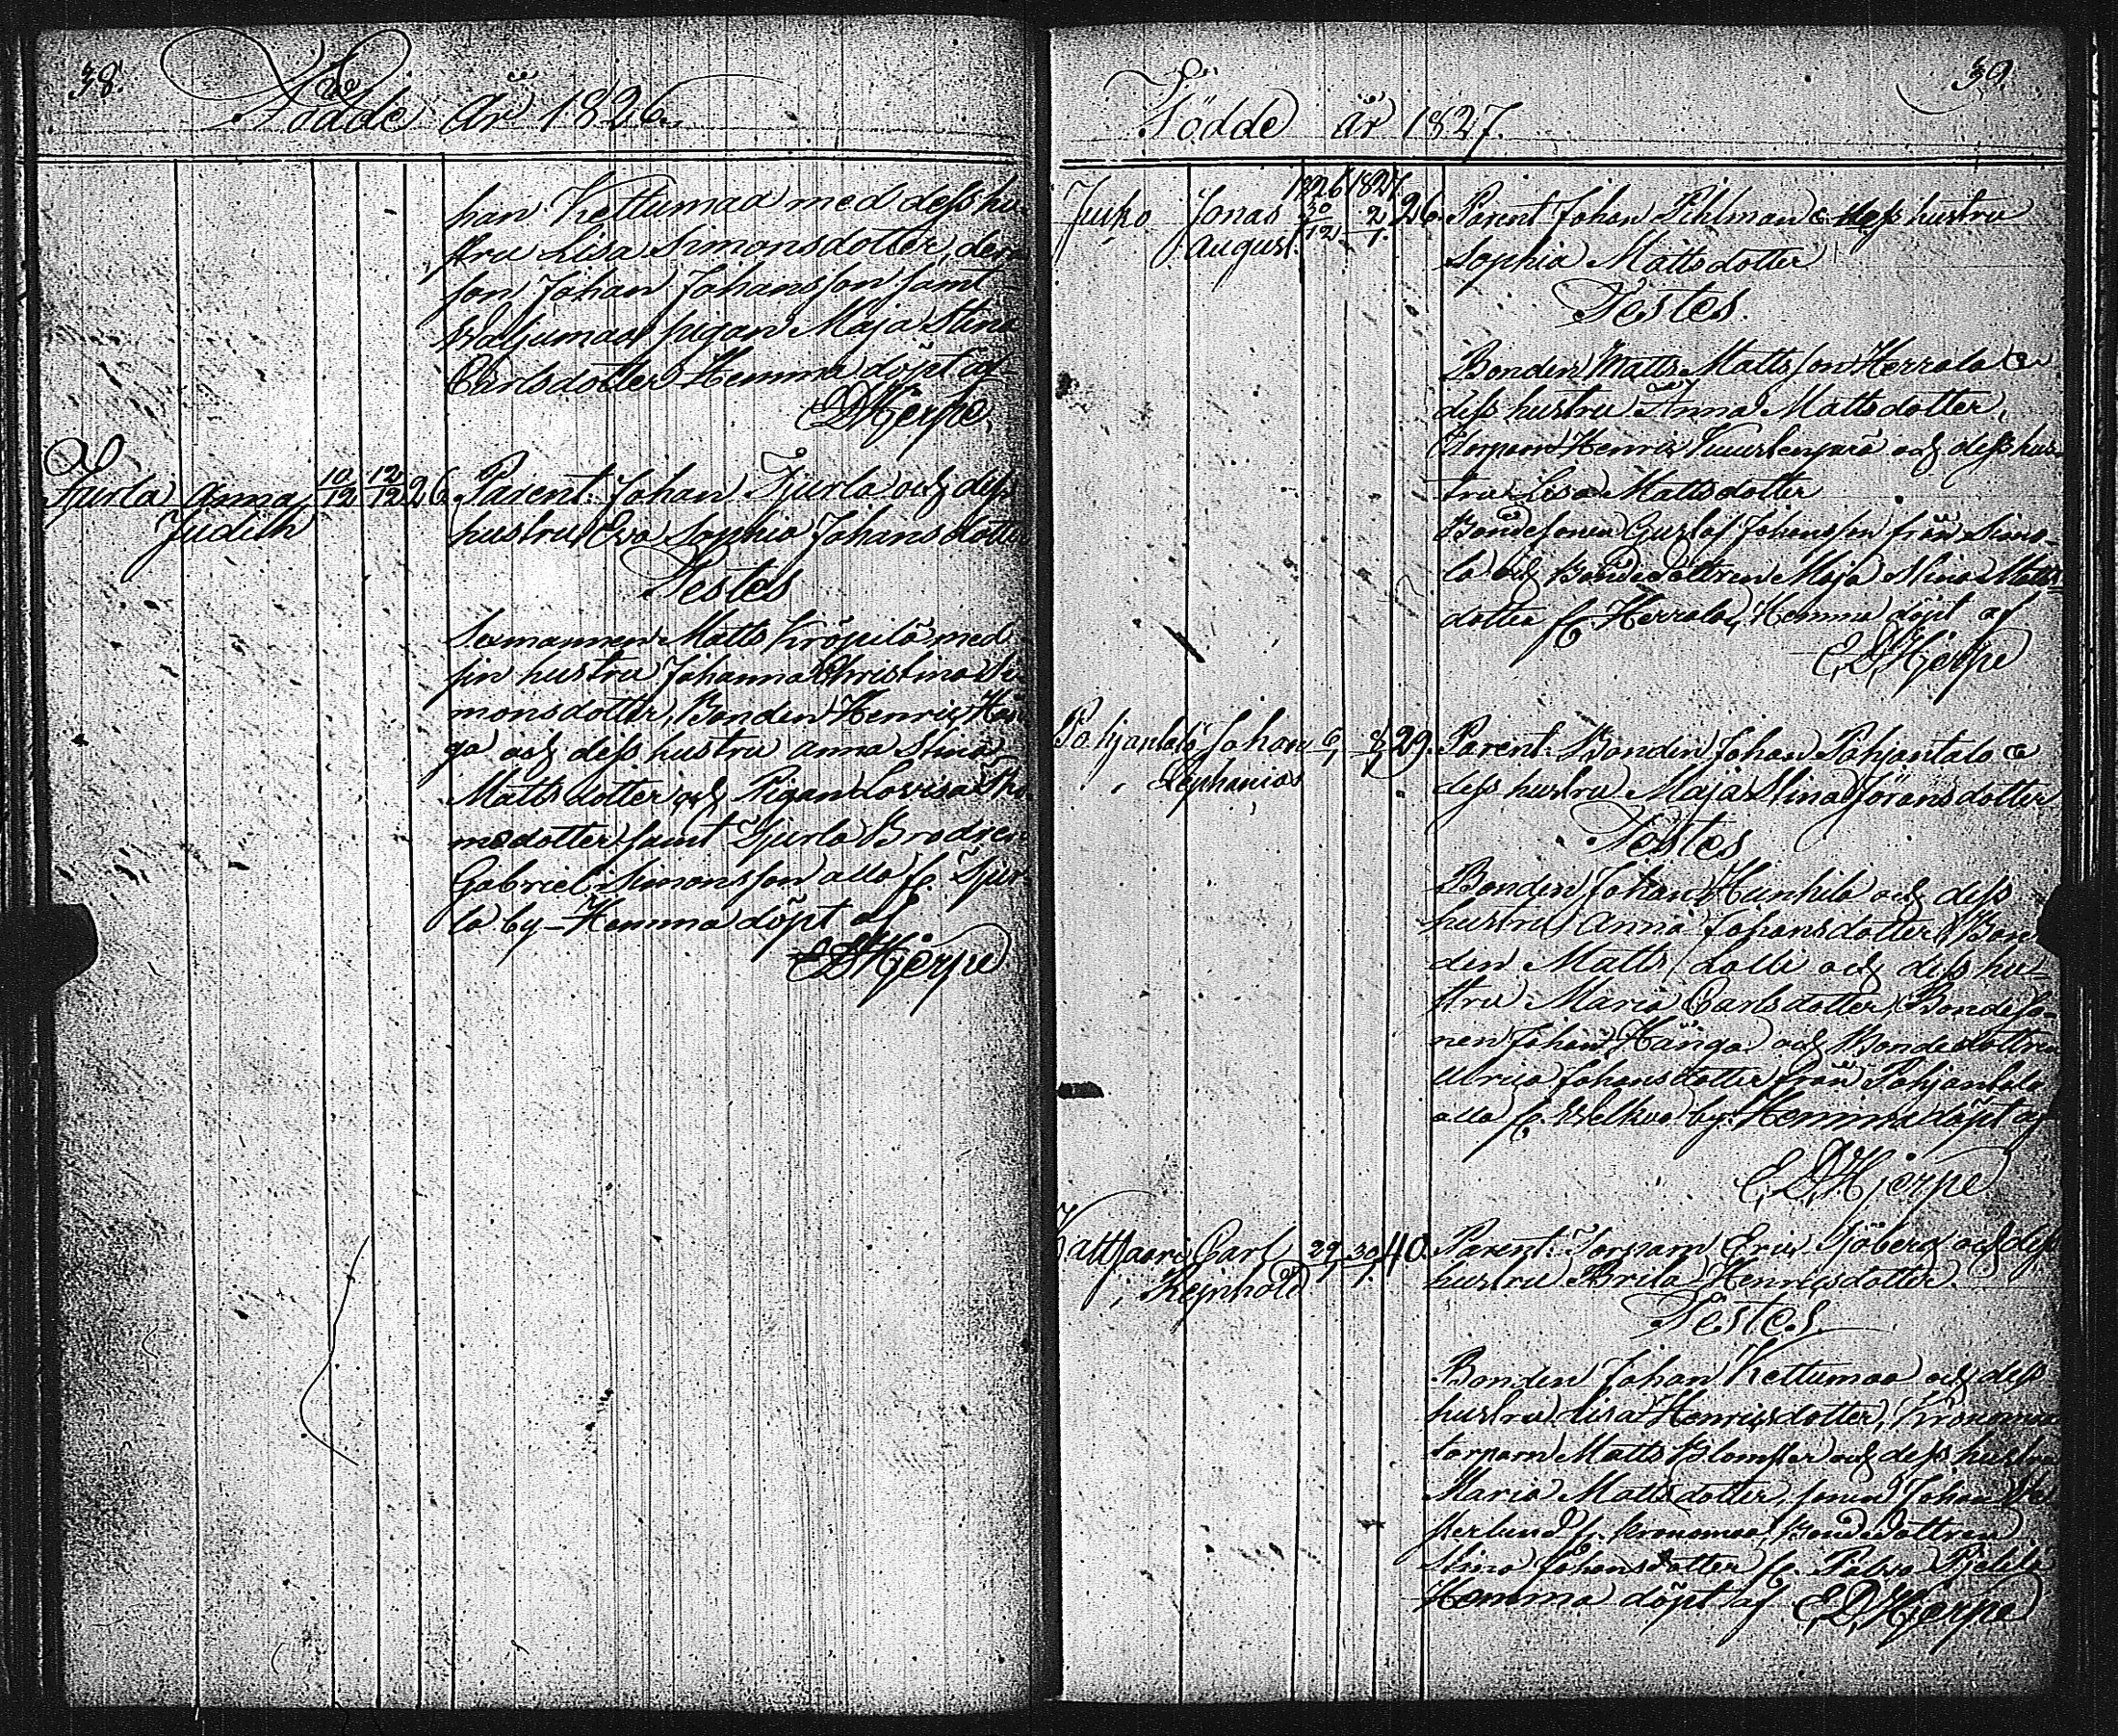 38.
Födde År 1826.
han Kettumaa med dess hu-
stru Lisa Simonsdotter, der
son Johan Johansson samt
pigan Maja Stina
Carlsdotter Hemma döpt af
E D Hjerpe.
Tjurla Anna 10/12 12/12 26 Parent: Johan Tjurla och dess
Judith hustru Eva Sophia Johansdotter
Testes
Sexmannen Matts Kröpilä med
sin hustru Johanna Christina Si-
monsdotter, Bonden Henric Hän
ga och dess hustru Anna Stina
Mattsdotter och Pigan Lovisa Tho
medotter samt Tjurla Brodren
Gabriel Simonsson alla fr. Tjur
la by - Hemma döpt af
E D Hjerpe
39.
Födde år 1827.
1826 1827
Jusko Jonas 30/12 2/1 26. Parent Johan Pihlman & dess hustru
August. Sophia Mattsdotter
Testes.
Bonden Matts Mattsson Herrala &
dess hustru Anna Mattsdotter,
Torparn Henric och dess hus-
tru Lisa Mattsdotter
Bondesonen Gustaf Johansson från Simo-
la och Bondedottren Maja Stina Matts
dotter fr. Herrala, Hemma döpt af
E. D. Hjerpe
Pohjantalo Johan 6/1 8/1 29. Parent: Bonden Johan Pohjantalo &
Zephanias dess hustru Maja Stina Jöransdotter
Testes
Bonden Johan Hunhila och dess
hustru Anna Johansdotter, Bon
den Matts Lalli och dess hu-
stru Maria Carlsdotter, Bondeso-
nen Johan Hänga och Bondedottren
Ulrica Johansdotter från Pohjantalo
alla fr. Welkua by. Hemma döpt af
E. D. Hjerpe
Kattsaari Carl 29/1 30/1 40. Parent: Torparn Eric Sjöberg och dess
Reinhold hustru Brita Henricsdotter.
Testes.
Bonden Johan Kettumaa och dess
hustru Lisa Henricsdotter, Kronomaa
torparn Matts Blomster och dess hustru
Maria Mattsdotter, sonen Johan We
sterlund fr. Kronomaa, Bondedottren
Stina Johansdotter fr.
Hemma döpt af E. D. Hjerpe